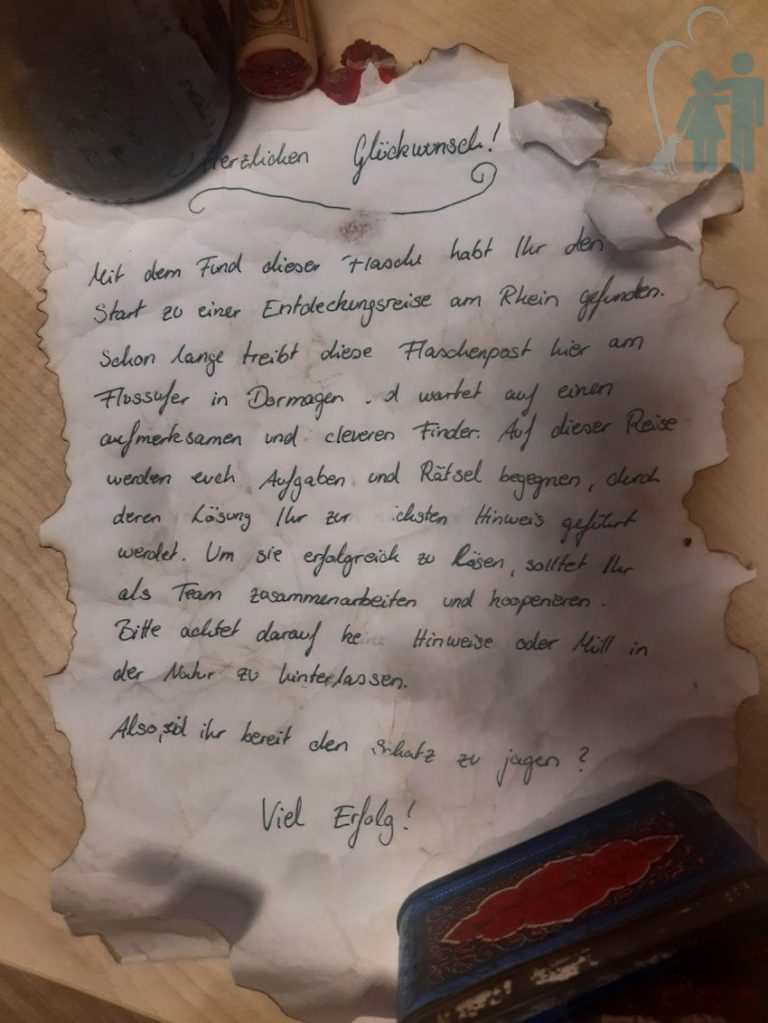 Herzlichen Glückwunsch!
Mit dem Fund dieser Flasche habt Ihr den
Start zu einer Entdeckungsreise am Rhein gefunden.
Schon lange treibt diese Flaschenpost hier am
Flussufer in Dormagen . d wartet auf einen
aufmerksamen und cleveren Finder. Auf dieser Reise
werden euch Aufgaben und Rätsel begegnen, durch
deren Lösung Ihr zur ichsten Hinweis geführt
werdet. Um sie erfolgreich zu lösen, solltet Ihr
als Team zusammenarbeiten und kooperieren.
Bitte achtet darauf ke Hinweise oder Müll in
der Natur zu hinterlassen.
Also, seid ihr bereit den Schatz zu jagen?
Viel Erfolg!